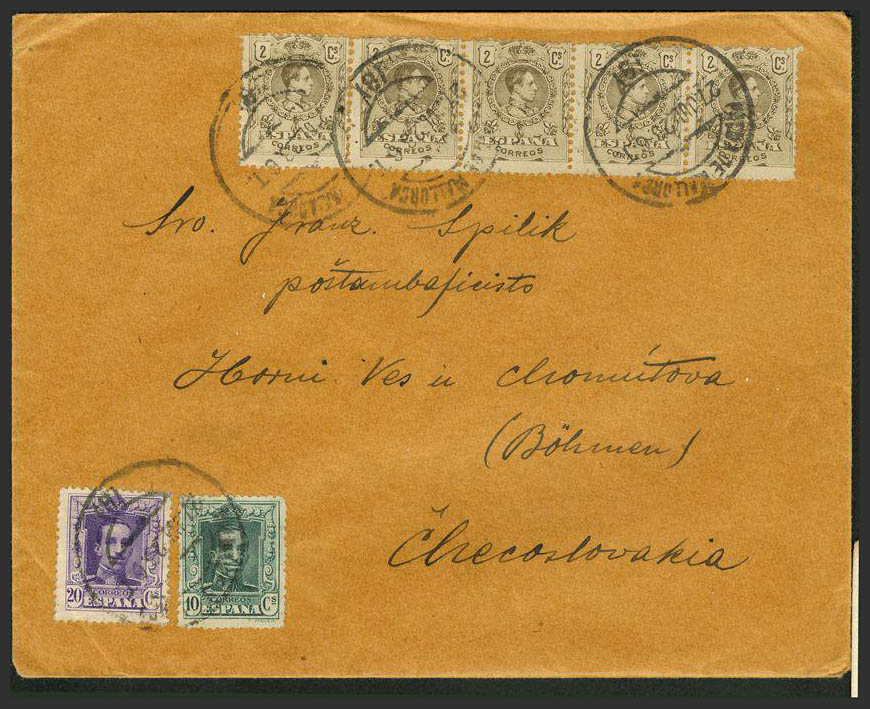 2 Cs 2 Cs 2 Cs 2 Cs 2 Cs
ESPAÑA ESPAÑA ESPAÑA ESPAÑA ESPAÑA
CORREOS CORREOS CORREOS CORREOS CORREOS
MALLORCA
Sro. Franz. Spilik
poštambaficisto
Horni Ves u Chomútova
(Böhmen)
Čhecoslovakia
CORREOS CORREOS
20 ESPAÑA Cs 10 ESPAÑA Cs